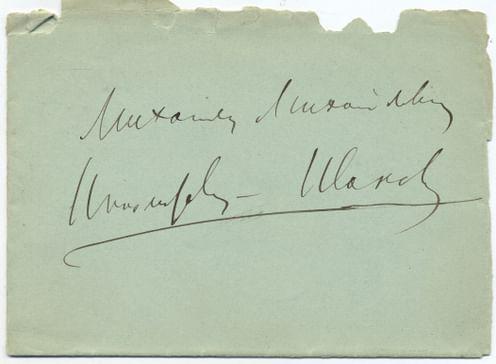 Михаилу Михайловичу
Ипполитову — Иванову